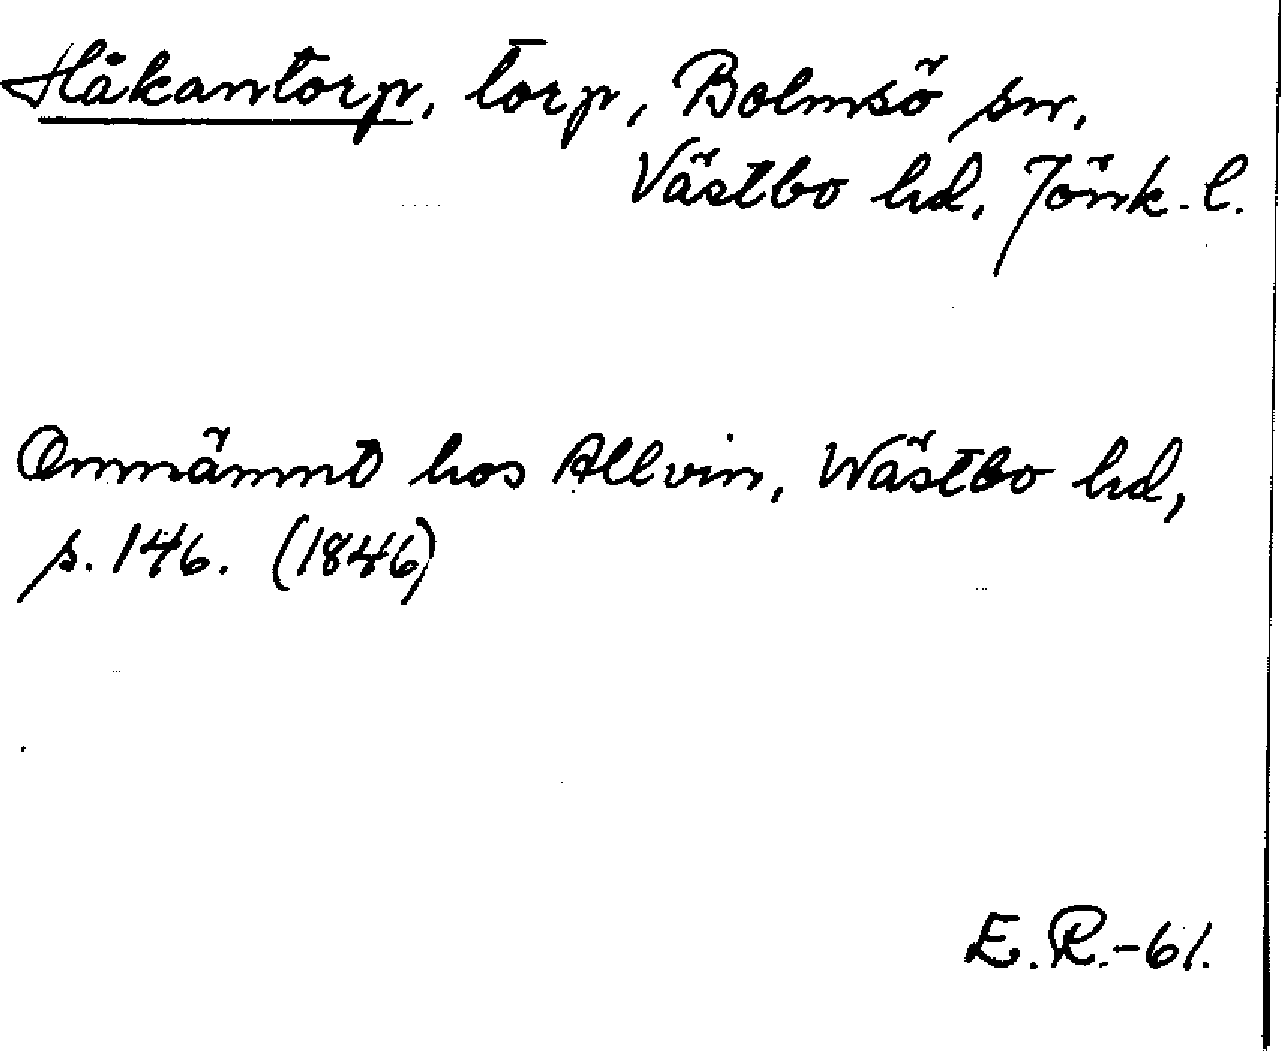 Håkantorp, torp, Bolmsö sn,
Västbo hd, Jönk. l.
Omnämnt hos Allvin, Wästbo hd,
s. 146. (1846)
E.R.-61.